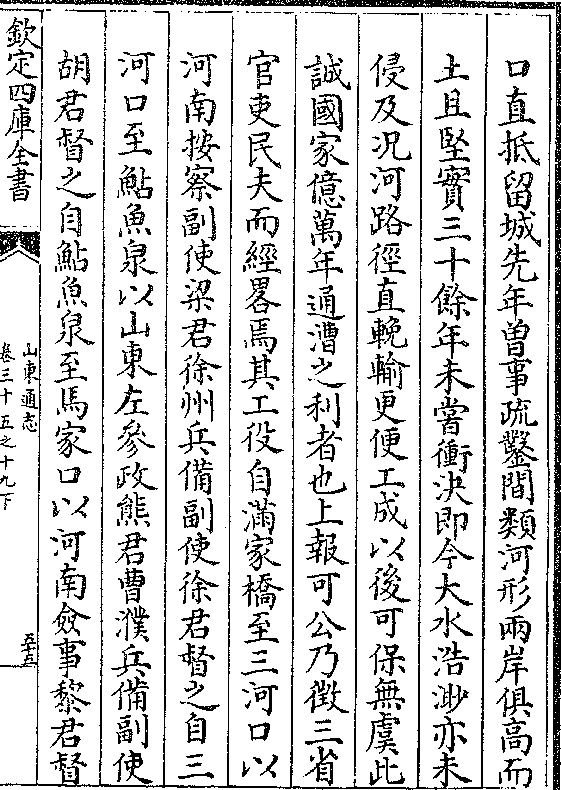 口直抵留城先年曽事疏鑿間類河形兩岸俱高而
土且堅實三十餘年未嘗衝決即今大水浩渺亦未
侵及況河路徑直輓輸更便工成以後可保無虞此
誠國家億萬年通漕之利者也上報可公乃徴三省
官吏民夫而經畧焉其工役自滿家橋至三河口以
河南按察副使梁君徐州兵備副使徐君督之自三
河口至鮎魚泉以山東左參政熊君曹濮兵備副使
胡君督之自鮎魚泉至馬家口以河南僉事黎君督
欽定四庫全書
山東通志
卷三十五之十九下